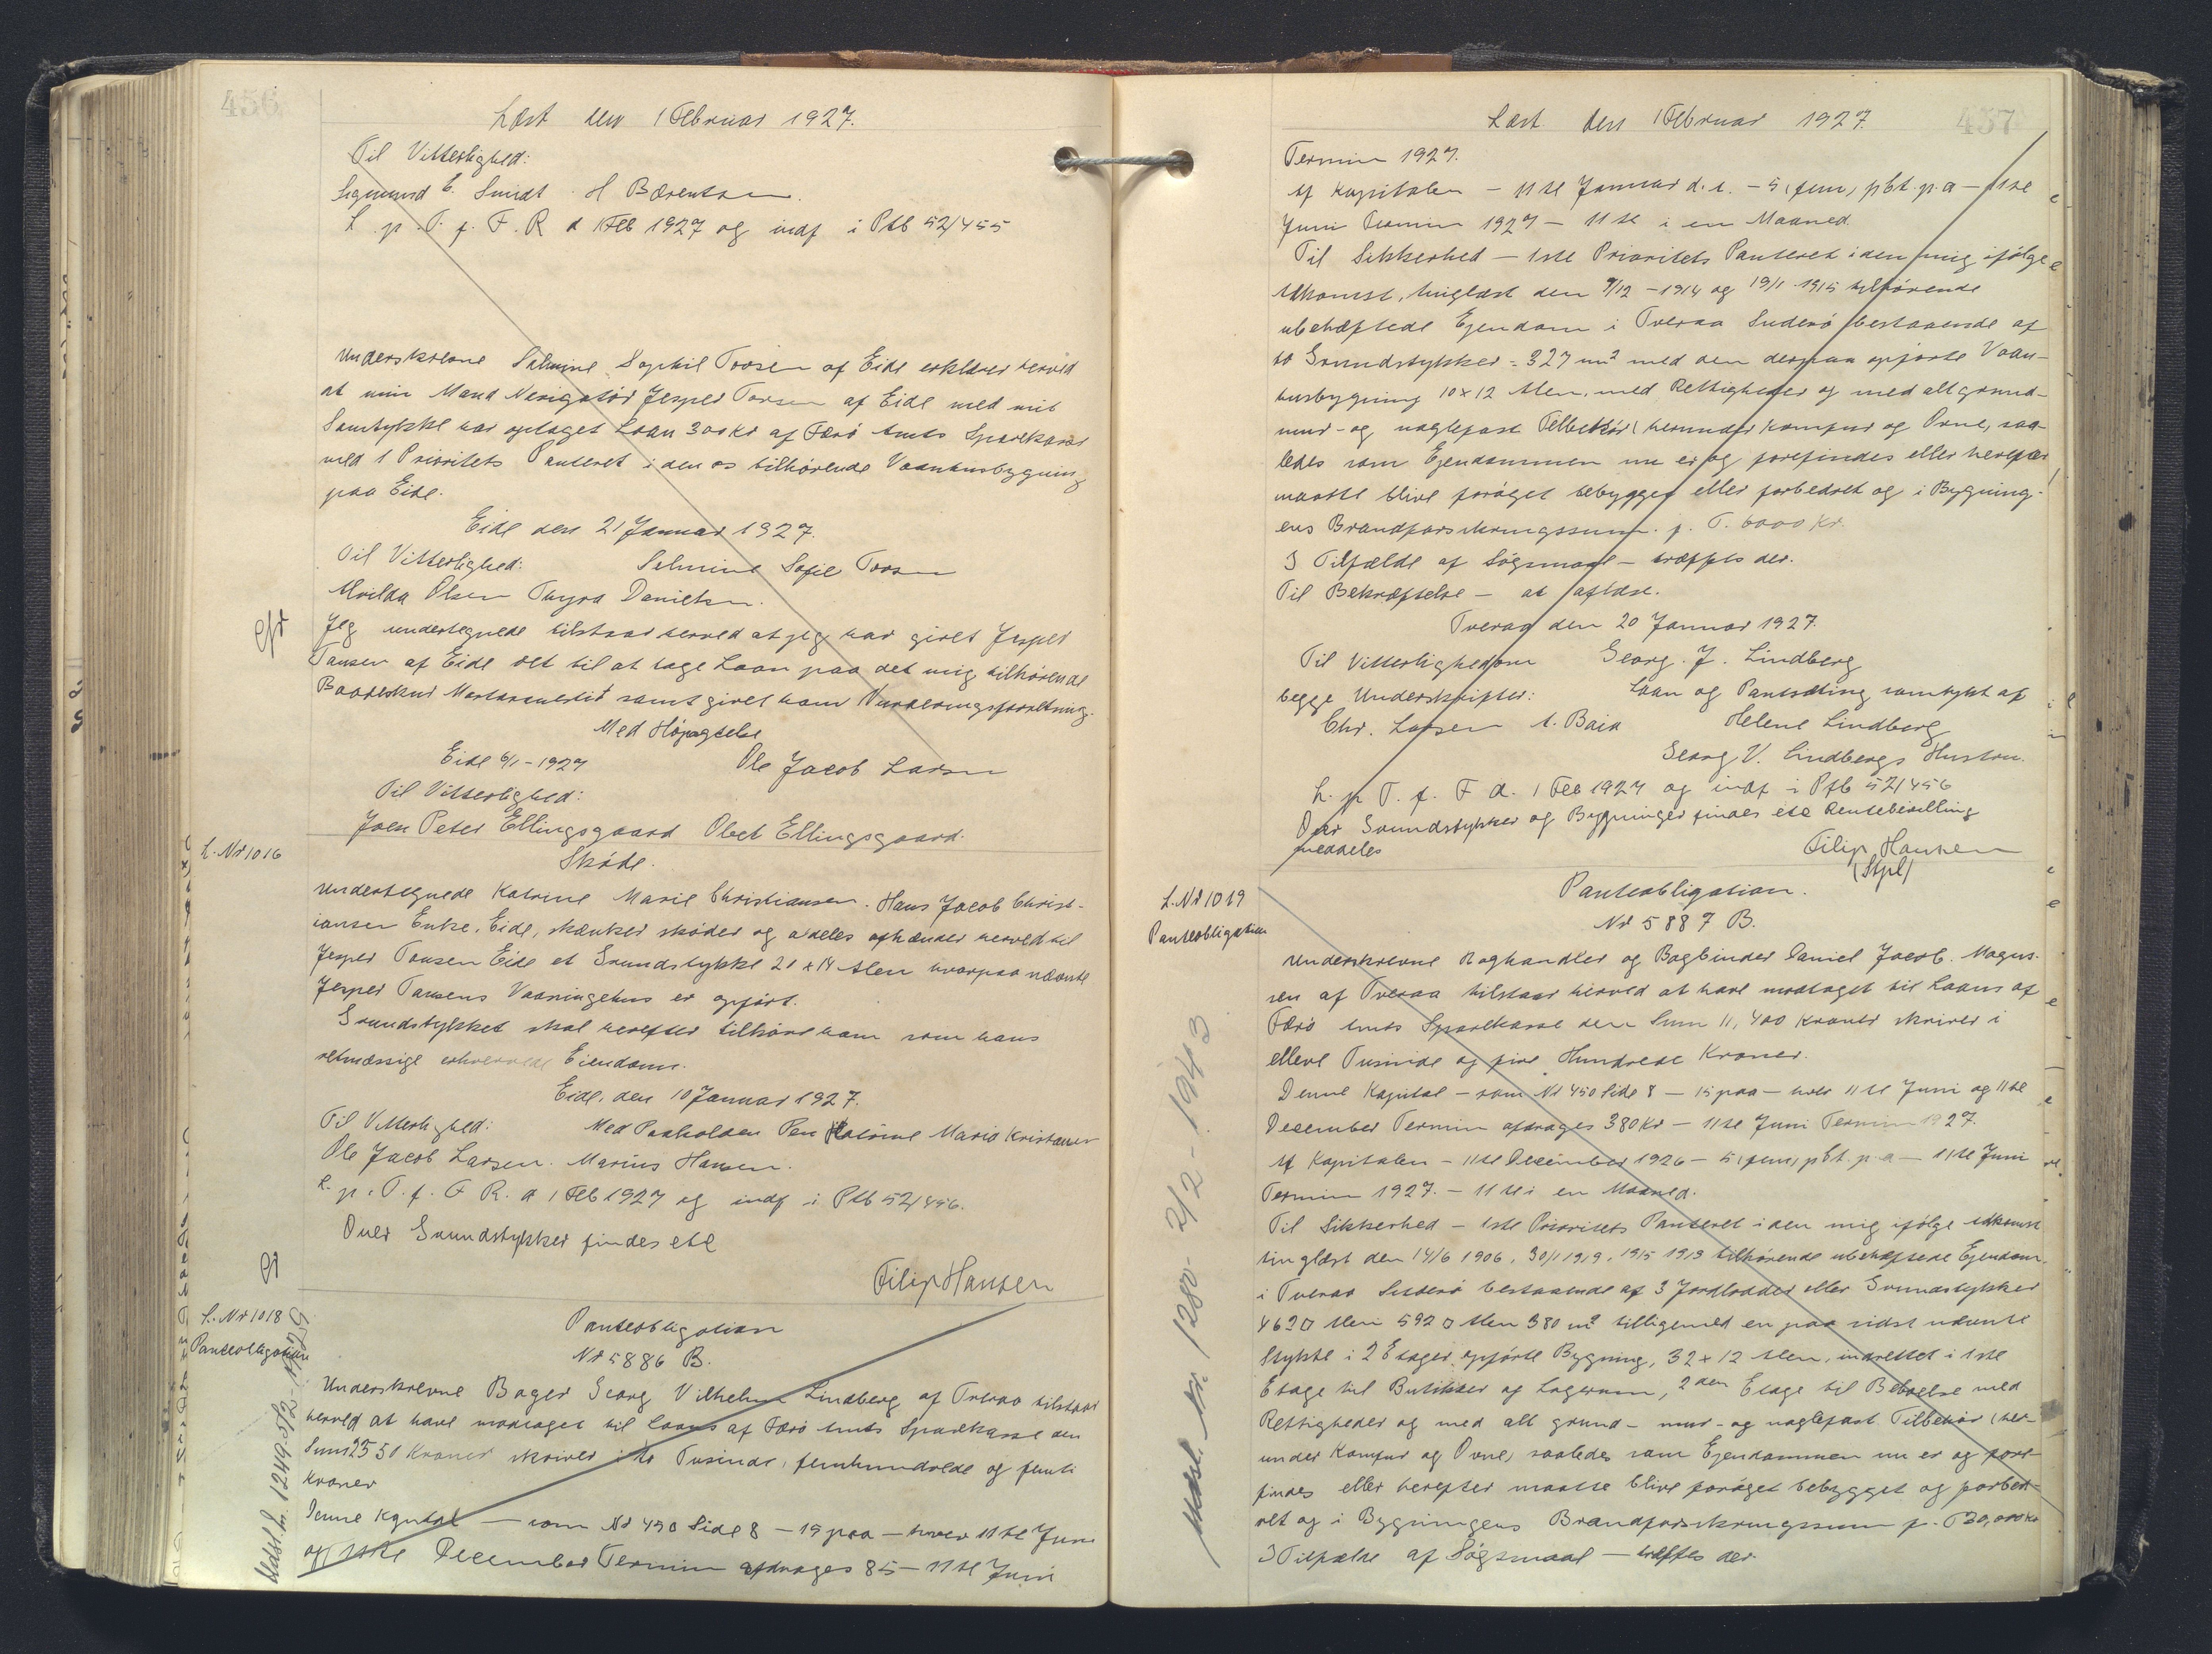 456
Læst den 1 Februar 1927.
Til Vitterlighed:
Sigmund E. Smidt H Bærentsen.
L. p. T. f. F. R d 1 Feb 1927 og indf i Ptb 52/455
Underskrevne Selmine Sophie Toosen af Eide erklærer herved
at min Mand Navigatør Jesper Toosen af Eide med mit
Samtykke har optaget Laan 300 Kr af Færø Amts Sparekasse
med 1 Prioritets Panteret i den os tilhørende Vaanhusbygning
paa Eide.
Eide den 21 Januar 1927.
Til Vitterlighed: Selmine Sofie Toosen
Milda Olsen Thyra Danielsen.
eft
Jeg undertegnede tilstaar herved at jeg har givet Jesper
Tausen af Eide ret til at tage Laan paa det mig tilhørende
Baadeskur samt givet ham Vurderingsforretning.
Med Højagtelse
Eide 6/1-1927 Ole Jacob Larsen
Til Vitterlighed:
Joen Peter Ellingsgaard Obet Ellingsgaard.
L. Nr 1016
Skøde.
Undertegnede Katrine Marie Christiansen. Hans Jacob Christ-
iansen Enke, Eide, skænker skøder og aldeles afhænder herved til
Jesper Tausen Eide et Grundstykke 21 x 14 Alen hvorpaa nævnte
Jesper Tausens Vaaningehus er opført.
Grundstykket skal herefter tilhøre ham som hans
retmæssige erhvervede Eiendom.
Eide, den 10 Januar 1927.
Til Vitterlighed: Med Paaholden Pen Katrine Maria Kristiansen
Ole Jacob Larsen. Marius Hansen.
L. p. T. f. F R. d 1 Feb 1927 og indf i Ptb 52/456.
Over Grundstykker findes etc
Filip Hansen
L. Nr 1018
Panteobligation
Panteobligation
Nr 5886 B.
Underskrevne Bager Georg Vilhelm Lindberg af Tveraa tilstaar
herved at have modtaget til Laans af Færø Amts Sparekasse den
Sum 2550 Kroner skriver i to Tusinde, femhundrede og femti
Kroner
Denne Kapital — som Nr 450 Side 8 — 15 paa — hver 11te Juni
og 11te December Termin afdrages 85 — 11te Juni
457
Læst den 1 Februar 1927.
Termin 1927.
Af Kapitalen — 11te Januar d. A. — 5 (fem) pCt. p.a — 11te
Juni Termin 1927 — 11te i en Maaned.
Til Sikkerhed — 1ste Prioritets Panteret i den mig ifølge
Adkomst, tinglæst den 9/12 - 1914 og 19/1 1915 tilhørende
ubehæftede Ejendom i Tveraa Suderø bestaaende af
to Grundstykker = 327 m² med den derpaa opførte Vaan-
husbygning 10 x 12 Alen, med Rettigheder og med alt grund-
mur- og naglefast Tilbehør (herunder Komfur og Ovne, saa-
ledes som Ejendommen nu er og forefindes eller herefter
maatte blive forøget bebygget eller forbedret og i Bygning-
ens Brandforsikringssum. p. T. 6000 Kr.
I Tilfælde af Søgsmaal — træffes der.
Til Bekræftelse — at aflæse.
Tveraa den 20 Januar 1927.
Til Vitterlighed om Georg. J. Lindberg
begge Underskrifter: Laan og Pantsæting samtykt af
Chr. Larsen A. Baia Helene Lindberg
Georg V. Lindbergs Hustru.
L. p T. f. F d. 1 Feb 1927 og indf i Ptb 52/456
Over Grundstykker og Bygninger findes etc Rentebestilling
meddeles
Filip Hansen
(Stpl)
L. Nr 1019
Panteobligation
Panteobligation.
Nr 5887 B.
Underskrevne Boghandler og Bogbinder Daniel Jacob. Magnus-
sen af Tveraa tilstaar herved at have modtaget til Laans af
Færø Amts Sparekasse den Sum 11,400 Kroner skriver i
elleve Tusinde og fire Hundrede Kroner.
Denne Kapital — som Nr 450 Side 8 — 15 paa — hver 11te Juni og 11te
December Termin afdrages 380 Kr — 11te Juni Termin 1927.
Af Kapitalen — 11te December 1926 — 5 (fem) pCt. p.a — 11te Juni
Termin 1927. — 11te i en Maaned.
Til Sikkerhed — 1ste Prioritets Panteret i den mig ifølge Adkomst
tinglæst den 14/6 1906, 30/1 1919, 19/5 1919 tilhørende ubehæftede Ejendom
i Tveraa Suderø bestaaende af 3 Jordlodder eller Grundstykker
462 □ Alen 592 □ Alen 380 m² tilligemed en paa sidst nævnte
Stykke i 2 Etager opførte Bygning, 32 x 12 Alen, indrettet i 1ste
Etage til Butikker og Lagerrum, 2den Etage til Beboelse med
Rettigheder og med alt grund- mur- og naglefast Tilbehør (her-
under Komfur og Ovne, saaledes som Ejendommen nu er og fore-
findes eller herefter maatte blive forøget bebygget og forbed-
ret og i Bygningens Brandforsikringssum p. T 30,000 Kr
I Tilfælde af Søgsmaal — træffes der.
Udsl. Nr. 1280 - 2/2 - 1943